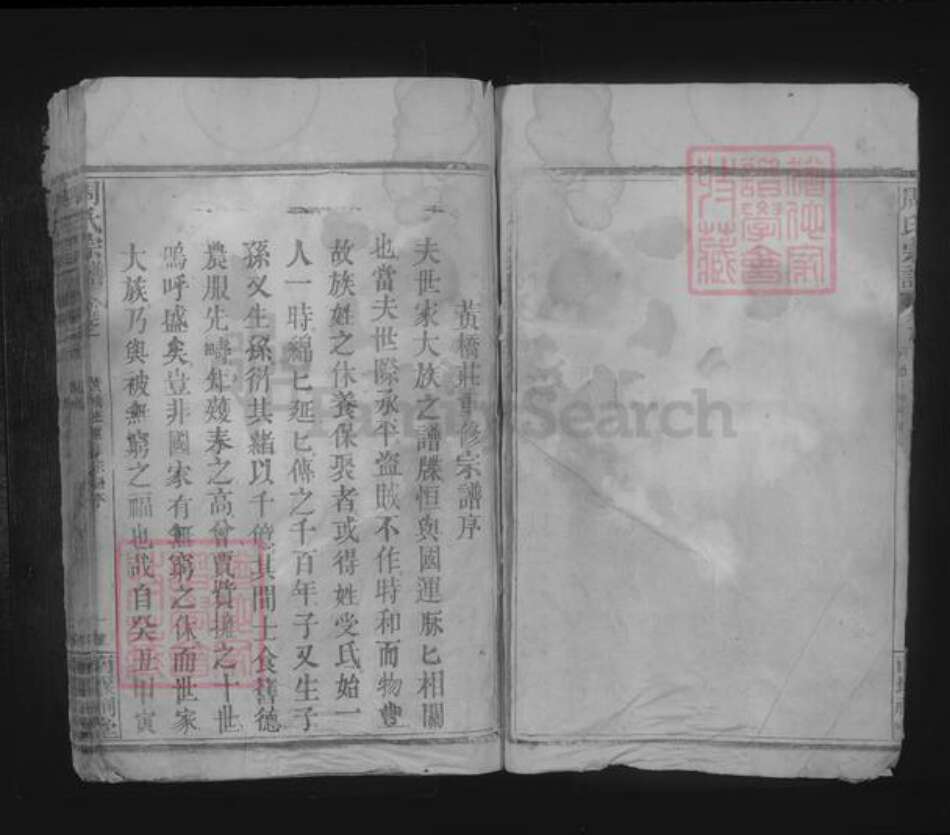 黃橋莊重修宗譜序
夫世家大族之譜牒恒與國運脉匕相關
也當夫世際承平盜賊不作時和而物豐
故族姓之休養保聚者或得姓受氏始一
人一時綿匕延匕傳之千百年子又生子
孫又生孫衍其緒以千億其間士食舊德
農服先疇
之高曾賈貲擁之十世
嗚呼盛矣豈非國家有無窮之休而世家
大族乃與被無窮之福也哉自癸丑甲寅
周氏宗譜
FamilySearch